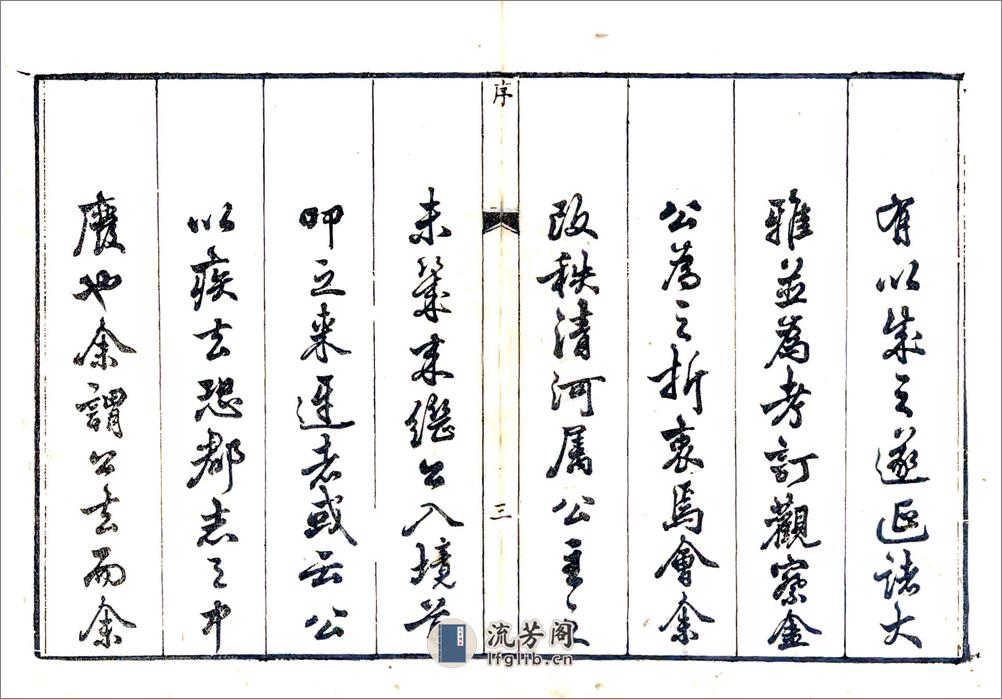 有以成之遂延諸大
雅並為考訂觀察金
公為之折衷焉會余
改秩清河属公量之
未幾來繼公入境首
叩之來迓者或云公
以疾去恐郡志之中
廢也余謂公去而余
序
三
流芳阁
lfglib.cn